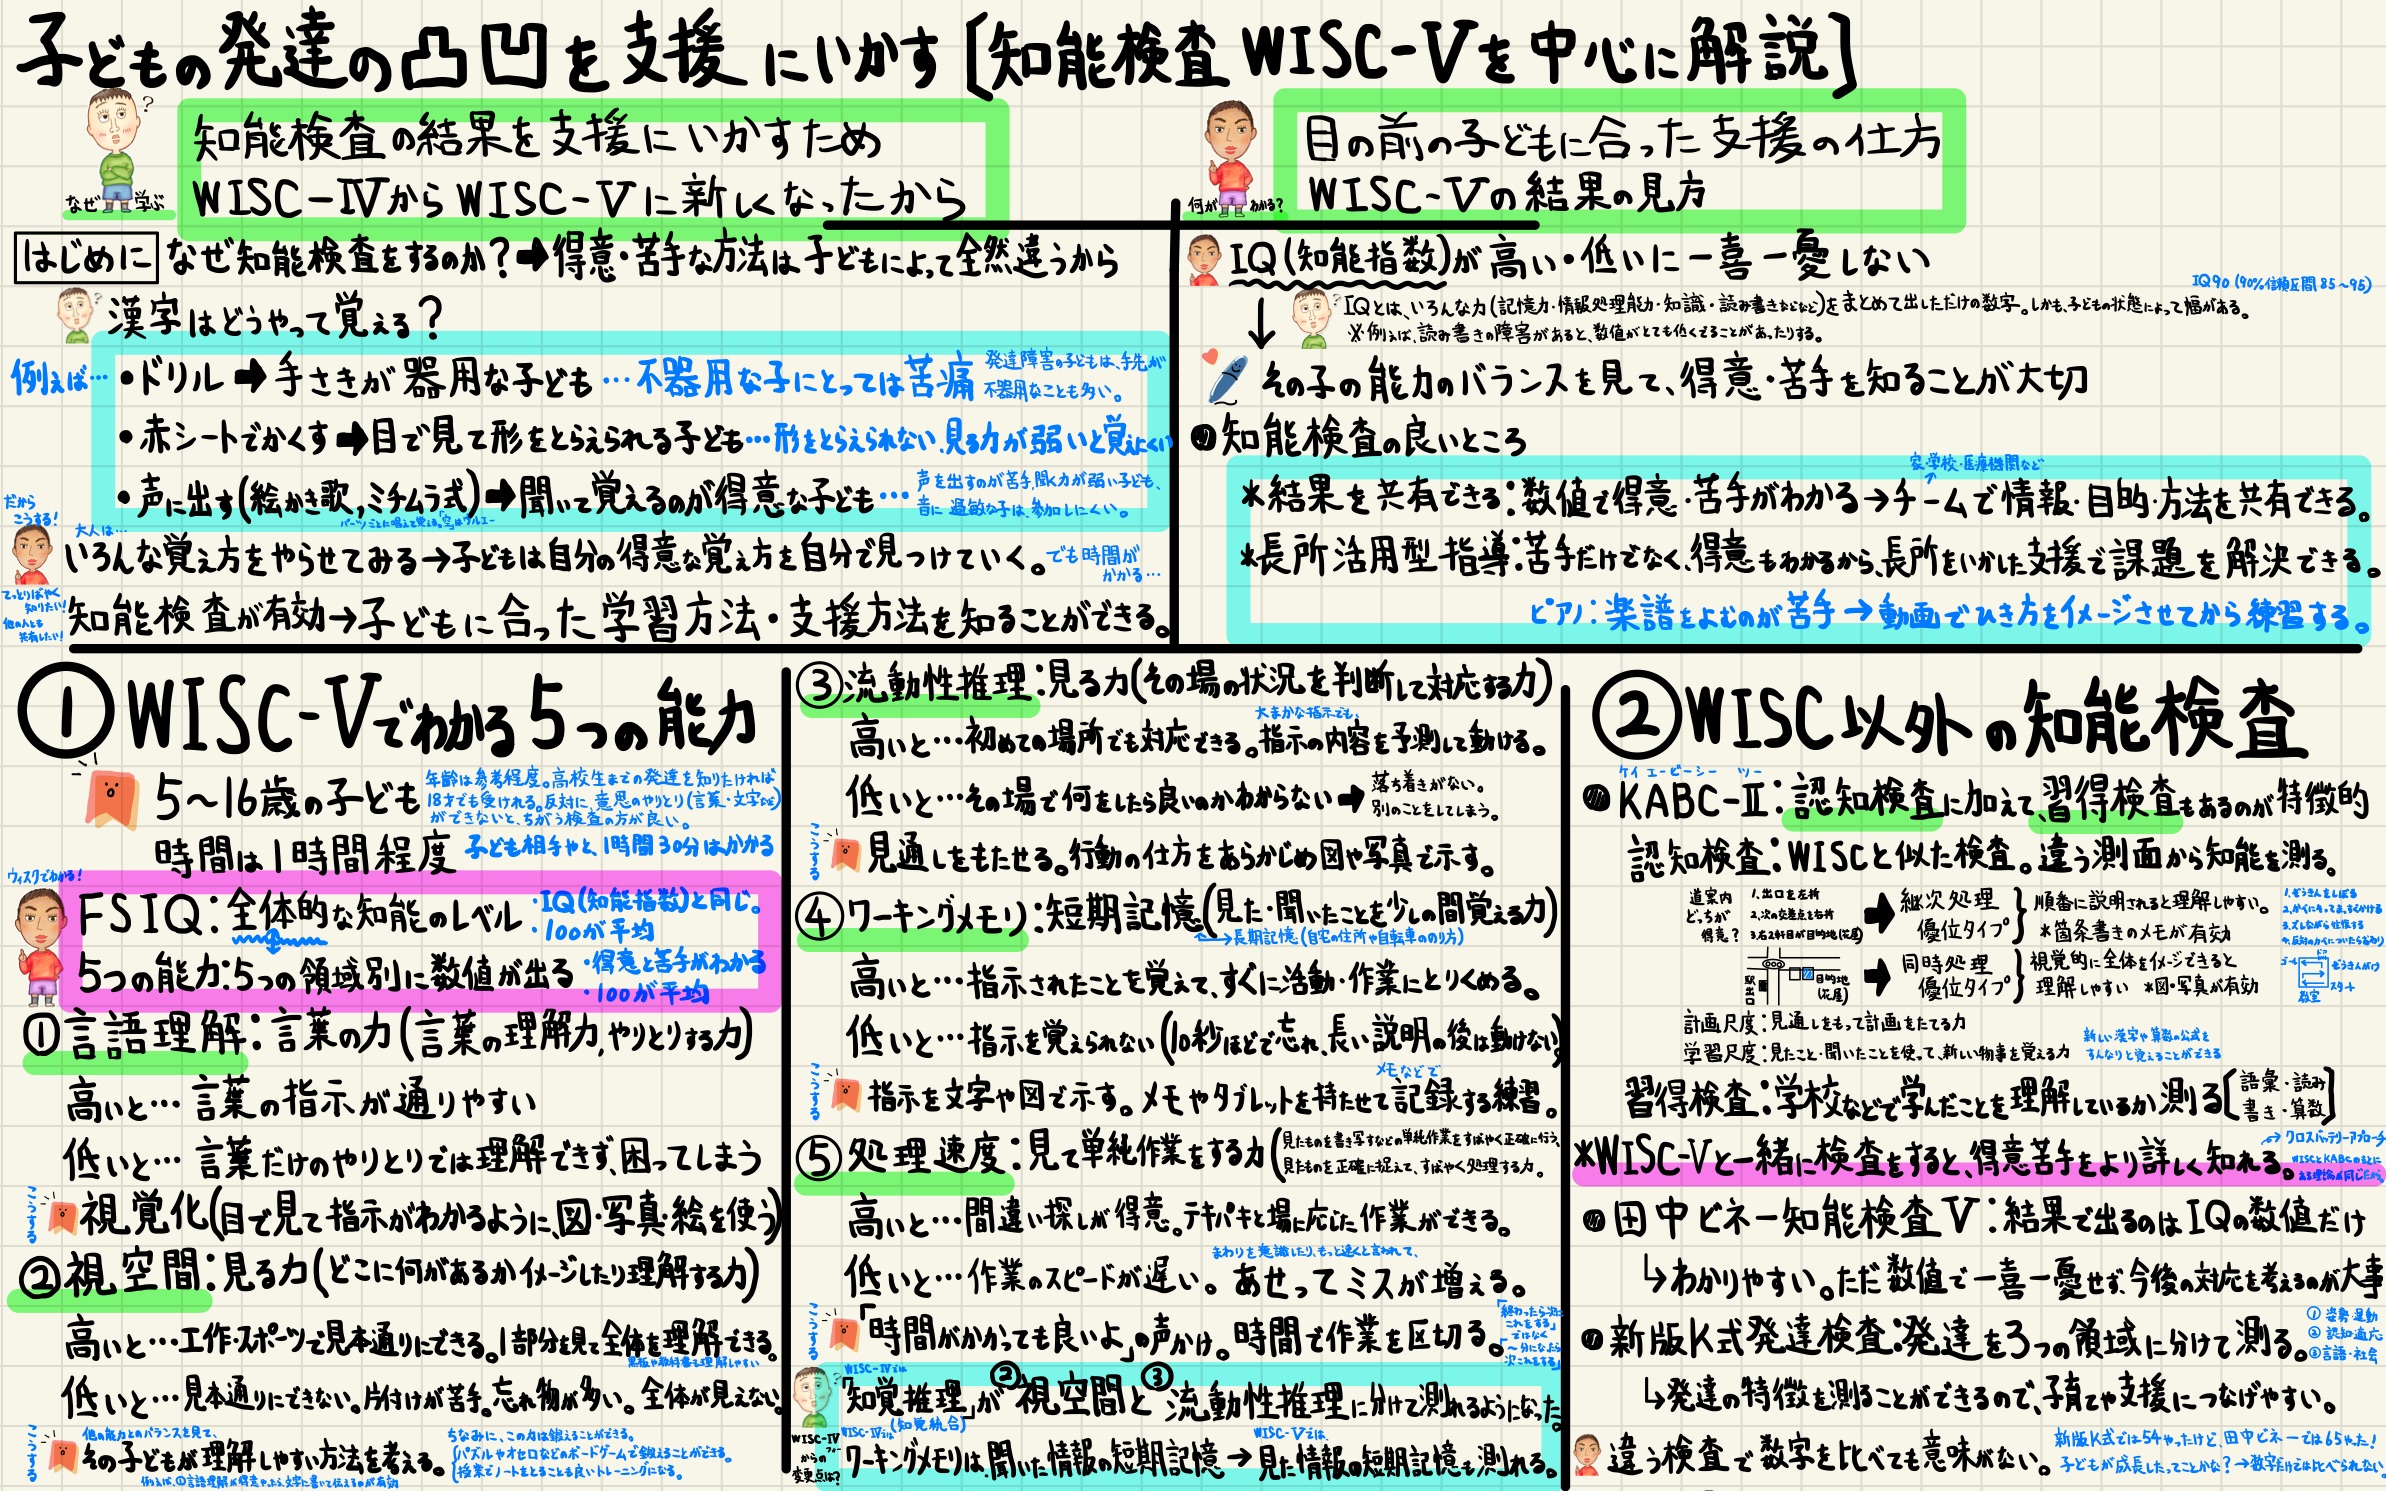 子どもの発達の凸凹を支援にいかす[知能検査WISC-Ⅴを中心に解説]
?
なぜ学ぶ
知能検査の結果を支援にいかすため
WISC-ⅣからWISC-Ⅴに新しくなったから
何がわかる?
目の前の子どもに合った支援の仕方
WISC-Ⅴの結果の見方
はじめに なぜ知能検査をするのか?➡得意・苦手な方法は子どもによって全然違うから
漢字はどうやって覚える?
例えば…
・ドリル➡手さきが器用な子ども…不器用な子にとっては苦痛
発達障害の子どもは、手先が
不器用なことも多い。
・赤シートでかくす➡目で見て形をとらえられる子ども…形をとらえられない、見る力が弱いと覚えにくい
・声に出す(絵かき歌,ミチムラ式)➡聞いて覚えるのが得意な子ども…
声を出すのが苦手、聞く力が弱い子ども、
音に過敏な子は、参加しにくい。
パーツごとに唱えて覚える。「空」はウルエー
だから
こうする!
大人は…
いろんな覚え方をやらせてみる→子どもは自分の得意な覚え方を自分で見つけていく。
でも時間が
かかる…
てっとりばやく
知りたい!
他の人とも
共有したい!
知能検査が有効→子どもに合った学習方法・支援方法を知ることができる。
IQ(知能指数)が高い・低いに一喜一憂しない
IQ90(90%信頼区間85~95)
IQとは、いろんな力(記憶力・情報処理能力・知識・読み書きなどなど)をまとめて出しただけの数字。しかも、子どもの状態によって幅がある。
※例えば、読み書きの障害があると、数値がとても低くでることがあったりする。
↓
その子の能力のバランスを見て、得意・苦手を知ることが大切
知能検査の良いところ
家・学校・医療機関など
*結果を共有できる:数値で得意・苦手がわかる→チームで情報・目的・方法を共有できる。
*長所活用型指導:苦手だけでなく、得意もわかるから、長所をいかした支援で課題を解決できる。
ピアノ:楽譜をよむのが苦手→動画でひき方をイメージさせてから練習する。
①WISC-Ⅴでわかる5つの能力
5~16歳の子ども
年齢は参考程度。高校生までの発達を知りたければ
18才でも受けれる。反対に、意思のやりとり(言葉・文字など)
ができないと、ちがう検査の方が良い。
時間は1時間程度
子ども相手やと、1時間30分はかかる
ウィスクでわかる!
FSIQ:全体的な知能のレベル
・IQ(知能指数)と同じ。
・100が平均
5つの能力:5つの領域別に数値が出る
・得意と苦手がわかる
・100が平均
①言語理解:言葉の力(言葉の理解力,やりとりする力)
高いと…言葉の指示が通りやすい
低いと…言葉だけのやりとりでは理解できず、困ってしまう
こうする
視覚化(目で見て指示がわかるように、図・写真・絵を使う)
②視空間:見る力(どこに何があるかイメージしたり理解する力)
高いと…工作・スポーツで見本通りにできる。1部分を見て全体を理解できる。
黒板や教科書も理解しやすい
低いと…見本通りにできない。片付けが苦手。忘れ物が多い。全体が見えない。
こうする
他の能力とのバランスを見て、
その子どもが理解しやすい方法を考える。
例えば、①言語理解が得意やったら文字に書いて伝えるのが有効
ちなみに、この力は鍛えることができる。
パズルやオセロなどのボードゲームで鍛えることができる。
授業でノートをとることも良いトレーニングになる。
③流動性推理:見る力(その場の状況を判断して対応する力)
大まかな指示でも、
高いと…初めての場所でも対応できる。指示の内容を予測して動ける。
低いと…その場で何をしたら良いのかわからない➡
落ち着きがない。
別のことをしてしまう。
こうする
見通しをもたせる。行動の仕方をあらかじめ図や写真で示す。
④ワーキングメモリ:短期記憶(見た・聞いたことを少しの間覚える力)
↔長期記憶(自宅の住所や自転車ののり方)
高いと…指示されたことを覚えて、すぐに活動・作業にとりくめる。
低いと…指示を覚えられない(10秒ほどで忘れ、長い説明の後は動けない)
こうする
メモなどで
指示を文字や図で示す。メモやタブレットを持たせて記録する練習。
⑤処理速度:見て単純作業をする力
見たものを書き写すなどの単純作業をすばやく正確に行う。
見たものを正確に捉えて、すばやく処理する力。
高いと…間違い探しが得意。テキパキと場に応じた作業ができる。
まわりを意識したり、もっと速くと言われて、
低いと…作業のスピードが遅い。あせってミスが増える。
こうする
「時間がかかっても良いよ」の声かけ。時間で作業を区切る。
「終わったら次は
これをする」
ではなく
「~分になったら
次これをする」
WISC-Ⅳからの変更点は?
WISC-Ⅳでは
「知覚推理」が②視空間と③流動性推理に分けて測れるようになった。
(知覚統合)
WISC-Ⅳでは
WISC-Ⅴでは、
ワーキングメモリは、聞いた情報の短期記憶→見た情報の短期記憶も測れる。
②WISC以外の知能検査
ケイ エービーシー ツー
KABC-Ⅱ:認知検査に加えて、習得検査もあるのが特徴的
認知検査:WISCと似た検査。違う測面から知能を測る。
道案内
どっちが
得意?
1.出口を左折
2.次の交差点を右折
3.右2軒目が目的地(花屋)
➡継次処理
優位タイプ
順番に説明されると理解しやすい。
*箇条書きのメモが有効
1.ぞうきんをしぼる
駅出口
目的地
(花屋)
➡同時処理
優位タイプ
視覚的に全体をイメージできると
理解しやすい *図・写真が有効
ゴール
ぞうきんがけ
スタート
教室
計画尺度:見通しをもって計画をたてる力
学習尺度:見たこと・聞いたことを使って、新しい物事を覚える力
新しい漢字や算数の公式を
すんなりと覚えることができる
習得検査:学校などで学んだことを理解しているか測る[語彙・読み
書き・算数]
*WISC-Ⅴと一緒に検査をすると、得意苦手をより詳しく知れる。
クロスバッテリーアプローチ
WISCとKABCのもとに
ある理論が同じだから。
田中ビネー知能検査Ⅴ:結果で出るのはIQの数値だけ
↳わかりやすい。ただ数値で一喜一憂せず、今後の対応を考えるのが大事
新版K式発達検査:発達を3つの領域に分けて測る。
①姿勢・運動
②認知・適応
③言語・社会
↳発達の特徴を測ることができるので、子育てや支援につなげやすい。
違う検査で数字を比べても意味がない。
新版K式では54やったけど、田中ビネーでは65やった!
子どもが成長したってことかな?→数字だけでは比べられない。